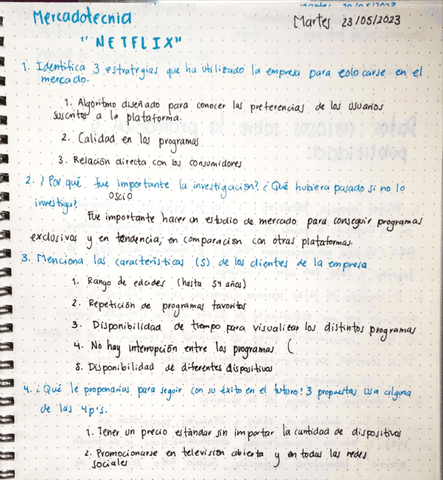 Mercadotecnia
Martes 23/05/2023
"NETFLIX"
1. Identifica 3 estrategias que ha utilizado la empresa para colocarse en el
mercado.
1. Algoritmo diseñado para conocer las preferencias de los usuarios
suscritos a la plataforma.
2. Calidad en los programas
3. Relación directa con los consumidores
2. ¿Por qué fue importante la investigación? ¿Qué hubiera pasado si no lo
investiga?
Fue importante hacer un estudio de mercado para conseguir programas
exclusivos y en tendencia, en comparación con otras plataformas.
3. Menciona las características (5) de los clientes de la empresa
1. Rango de edades (hasta 54 años)
2. Repetición de programas favoritos
3. Disponibilidad de tiempo para visualizar los distintos programas
4. No hay interrupción entre los programas (
5. Disponibilidad de diferentes dispositivos
4. ¿Qué le propondrías para seguir con su éxito en el futuro? 3 propuestas usa alguna
de las 4p's.
1. Tener un precio estándar sin importar la cantidad de dispositivos
2. Promocionarse en televisión abierta y en todas las redes
sociales